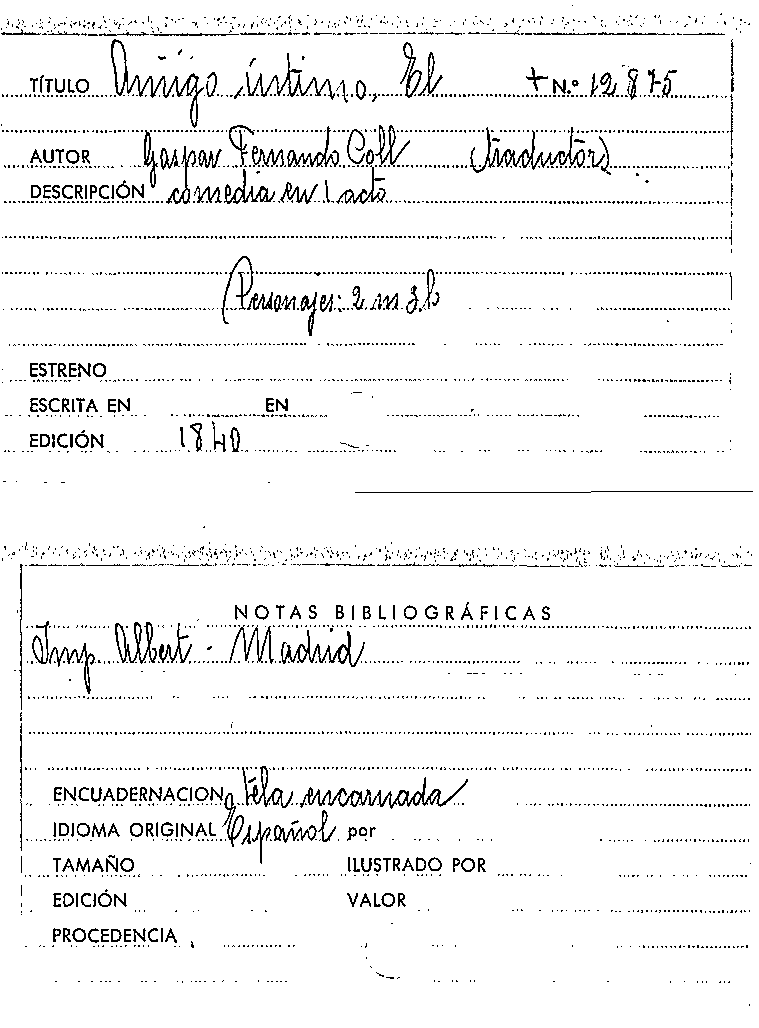 TÍTULO Amigo íntimo, El + N.º 12875
AUTOR Gaspar Fernando Coll (traductor)
DESCRIPCIÓN comedia en 1 acto
(Personajes: 2 m 3 h
ESTRENO
ESCRITA EN EN
EDICIÓN 1840
NOTAS BIBLIOGRÁFICAS
Imp. Albert - Madrid
ENCUADERNACION tela encarnada
IDIOMA ORIGINAL Español por
TAMAÑO ILUSTRADO POR
EDICIÓN VALOR
PROCEDENCIA